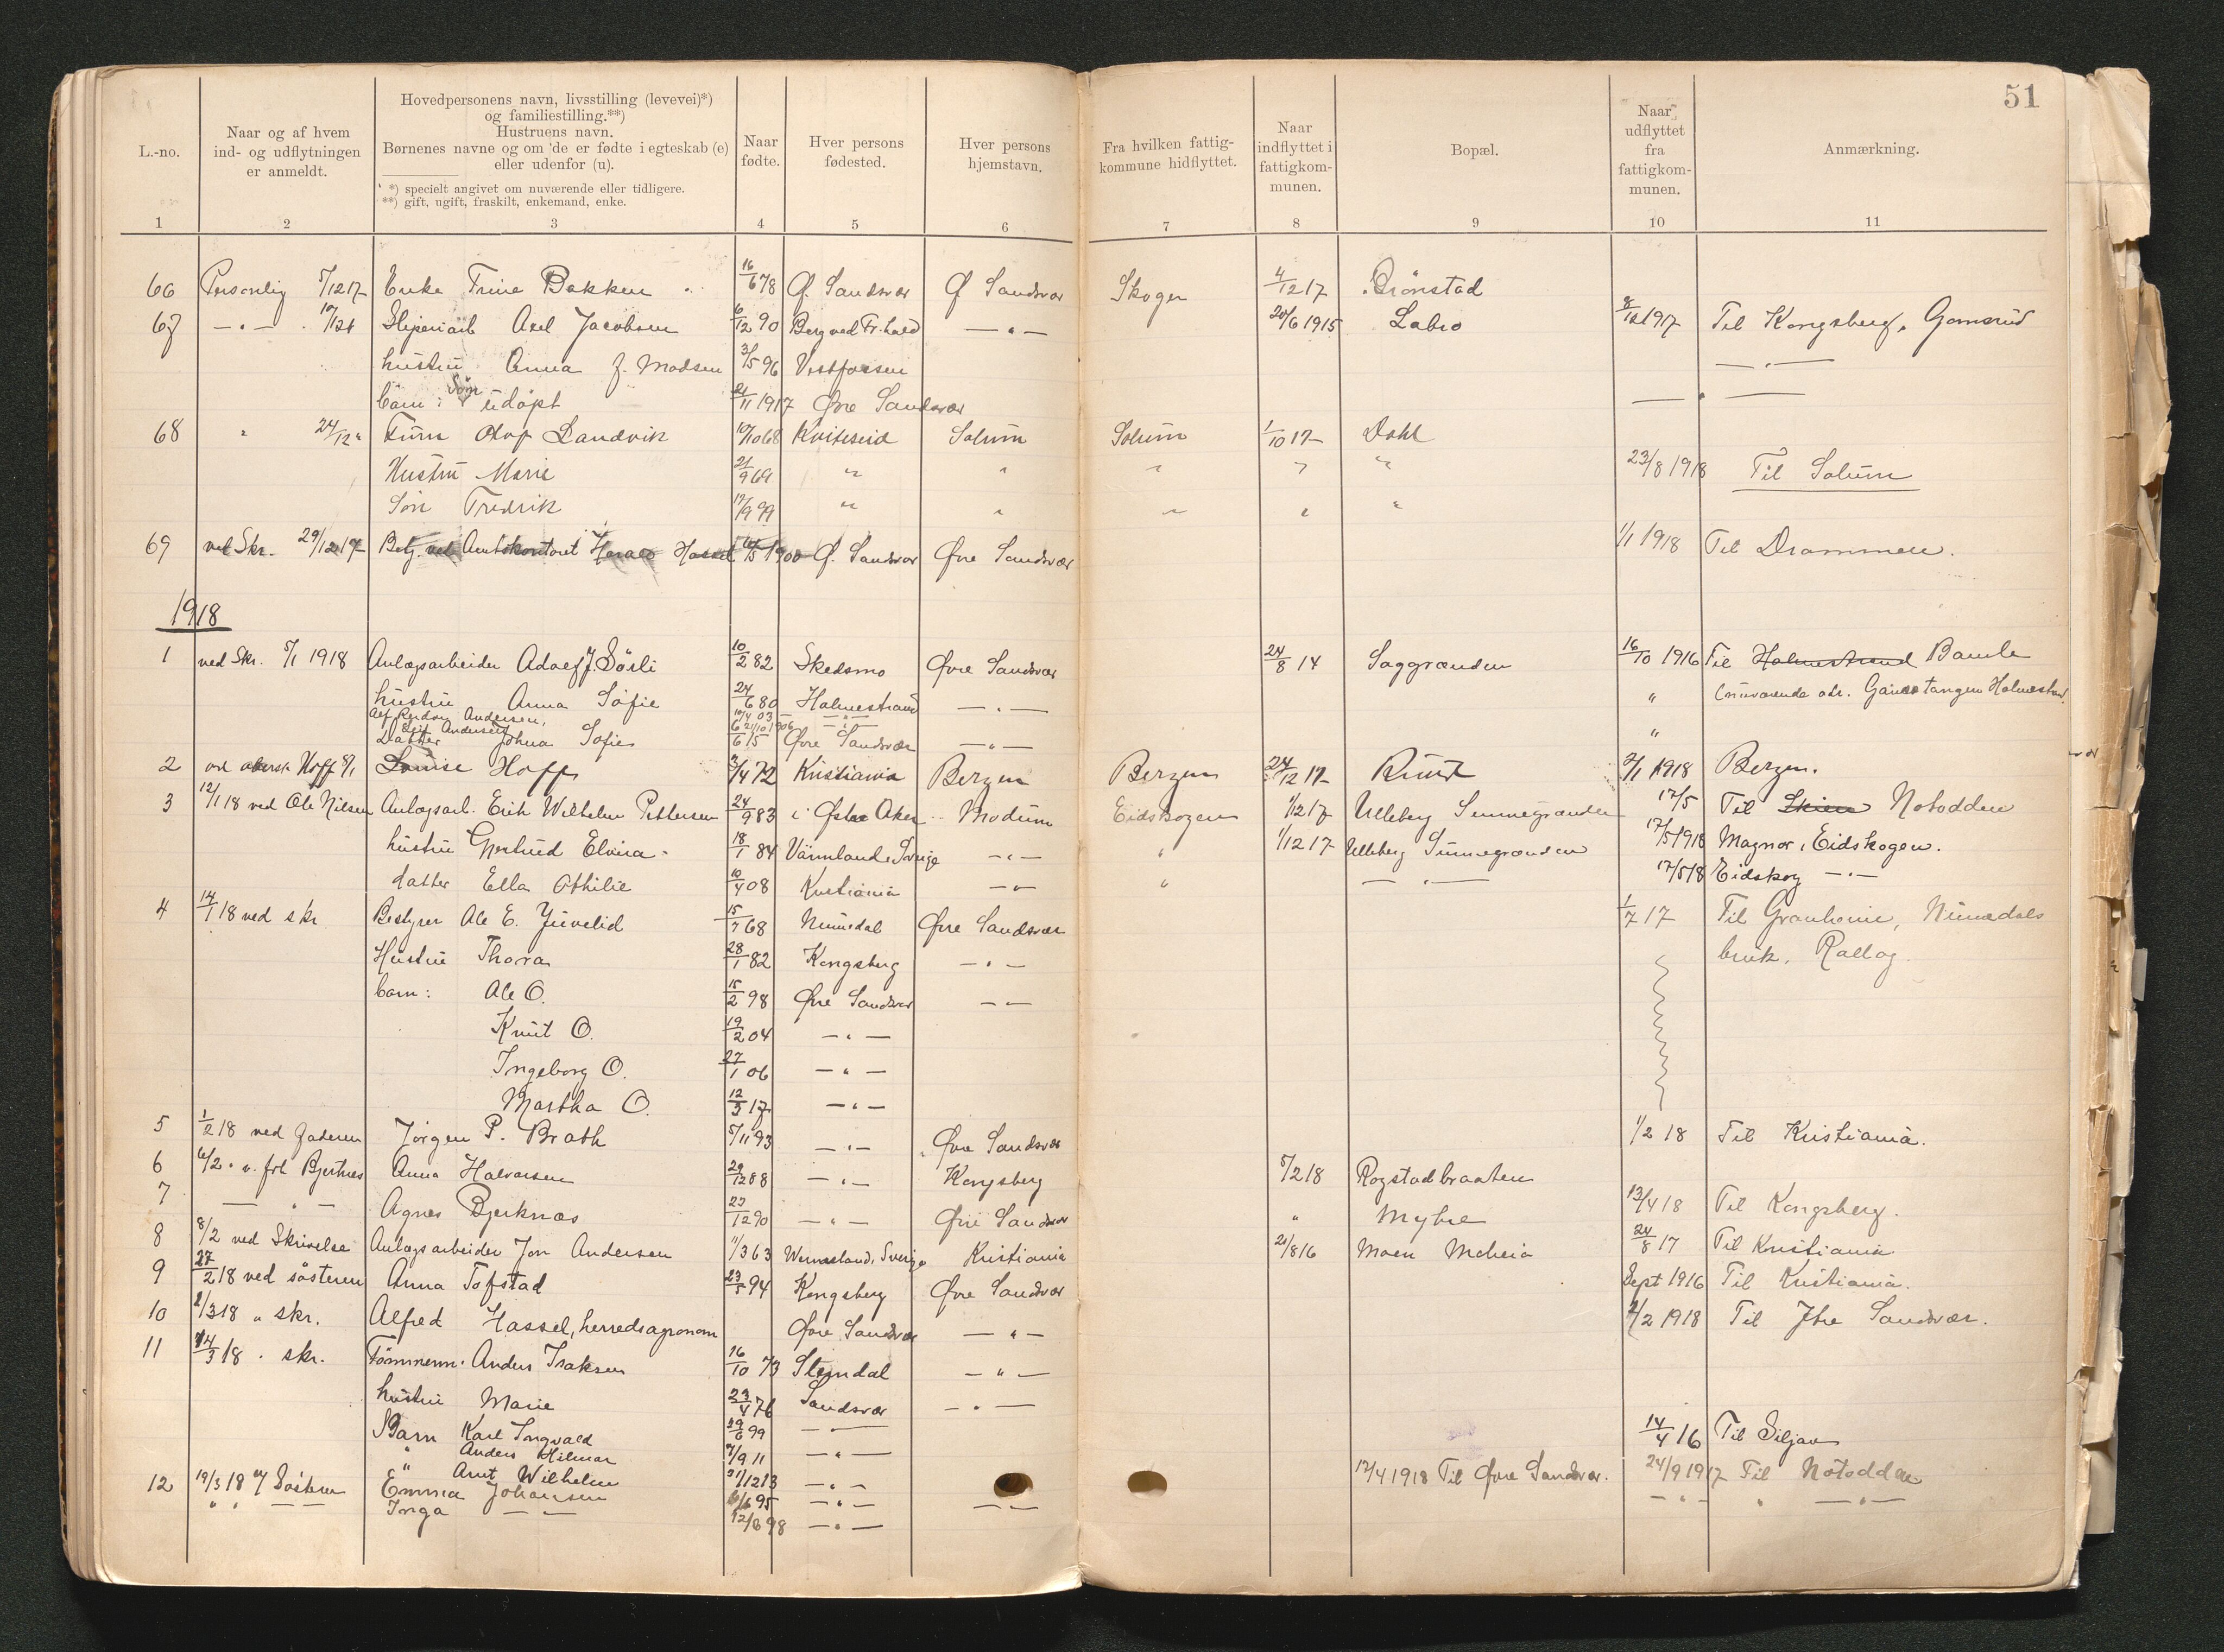 51
L.-no.
Naar og af hvem
ind- og udflytningen
er anmeldt.
Hovedpersonens navn, livsstilling (levevei)*)
og familiestilling.**)
Hustruens navn.
Børnenes navne og om de er fødte i egteskab (e)
eller udenfor (u).
*) specielt angivet om nuværende eller tidligere.
**) gift, ugift, fraskilt, enkemand, enke.
Naar
fødte.
Hver persons
fødested.
Hver persons
hjemstavn.
Fra hvilken fattig-
kommune hidflyttet.
Naar
indflyttet i
fattigkom-
munen.
Bopæl.
Naar
udflyttet
fra
fattigkom-
munen.
Anmærkning.
1 2 3 4 5 6 7 8 9 10 11
66 Personlig 5/12 17 Enke Trine Bakken 16/6 78 Ø. Sandsvær Ø Sandsvær Skoger 4/12 17 Grönstad
67 — " — Sliperiarb Axel Jacobsen 6/12 90 Berg ved Fr.hald — " — 20/6 1915 Labro 8/12 1917 Til Kongsberg, Gomsrud
hustru Anna f. Madsen 3/5 96 Vestfossen — " —
barn: Søn udøpt 21/11 1917 Øvre Sandsvær — " —
68 " 24/12 " Olaf Landvik 10/10 68 Kviteseid Solum Solum 1/10 17 Dahl
Hustru Marie 21/9 69 " " " " " 23/8 1918 Til Solum
Søn Fredrik 17/9 99 " " " " "
69 ved Skr. 29/12 17 Betj. ved Amtskontoret Harald Hassel 1900 Ø. Sandsvær Øvre Sandsvær 1/1 1918 Til Drammen.
1918
1 ved Skr. 5/1 1918 Anlægsarbeider Adolf J. Sørli 10/2 82 Skedsmo Øvre Sandsvær 24/8 14 Saggrænden 16/10 1916 Til Holmestrand Bamle
hustru Anna Sofie 24/6 80 Holmestrand — " — " (nuværende adr. Holmestrand
Alf Reidar Andersen, 10/4 03 — " —
Leif Andersen 21/10 1906 — " —
Datter Johna Sofie 6/6 15 Øvre Sandsvær — " — "
2 Hoff 8/1 Louise Hoff 3/4 72 Kristiania Bergen Bergen 24/12 17 Ruud 2/1 1918 Bergen.
3 12/1 18 ved Ole Nilsen Anlægsarb. Erik Wilhelm Pettersen 24/9 83 i Østre Aker Modum Eidskogen 1/12 17 Ulleberg Summegrænden 17/5 Til Skien Notodden
hustru Gjertrud Elvira 18/1 84 Värmland, Sverige — " — " 1/12 17 Ulleberg Summegrænden 17/5 1918 Magnor, Eidskogen.
datter Ella Othilie 10/4 08 Kristiania — " — " — " — 17/5 18 Eidskog — " —
4 14/1 18 ved skr Bestyrer Ole E. Juvelid 15/7 68 Numedal Øvre Sandsvær 1/7 17 Til Granheim, Numedals
Hustru Thora 28/1 82 Kongsberg — " — bruk, Rollag.
barn: Ole O. 15/2 98 Øvre Sandsvær — " —
Knut O. 19/2 04 — " —
Ingeborg O. 27/1 06 — " —
Martha O. 12/3 17 — " —
5 1/2 18 ved faderen Jørgen P. Brath 5/11 93 — " — Øvre Sandsvær 1/2 18 Til Kristiania.
6 6/2 " v. frk Bjerknes Anna Halvorsen 29/12 88 — " — Kongsberg 5/2 18 Rogstadbraaten
7 — " — Agnes Bjerknæs 23/12 90 — " — Øvre Sandsvær " Myhre 13/4 18 Til Kongsberg.
8 8/2 ved Skrivelse Anlægsarbeider Jon Andersen 11/3 63 Wermeland, Sverige Kristiania 21/8 16 Moen Meheia 24/8 17 Til Kristiania
9 27/2 18 ved søsteren Anna Tofstad 23/5 94 Kongsberg Øvre Sandsvær Sept 1916 Til Kristiania.
10 2/3 18 " skr. Alfred Hassel, herredsagronom Øvre Sandsvær — " — 2/2 1918 Til Ytre Sandsvær.
11 14/3 18 . skr. Tømmerm. Anders Isaksen 16/10 73 Slemdal — " —
hustru Marie 23/4 76 Sandsvær — " —
Barn Karl Ingvald 29/6 99 — " — 14/4 16 Til Siljan
" Anders Hilmar 7/9 11 — " —
" Arnt Wilhelm 21/12 13 — " —
12 19/3 18 af Søsteren Emma Johansen 6/6 95 — " — 12/4 1918 Til Øvre Sandsvær. 24/9 1917 Til Notodden
" " — — Inga — — 12/8 98 — " — — " — — " — " — " —